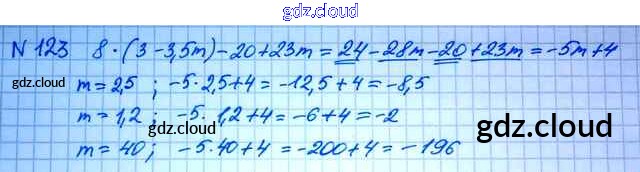 gdz.cloud
N 123 8·(3-3,5m)-20+23m = 24-28m-20+23m = -5m+4
gdz.cloud
m = 2,5 ; -5·2,5+4 = -12,5+4 = -8,5
m = 1,2 ; -5·1,2+4 = -6+4 = -2
gdz.cloud
gdz.cloud
m = 40 ; -5·40+4 = -200+4 = -196